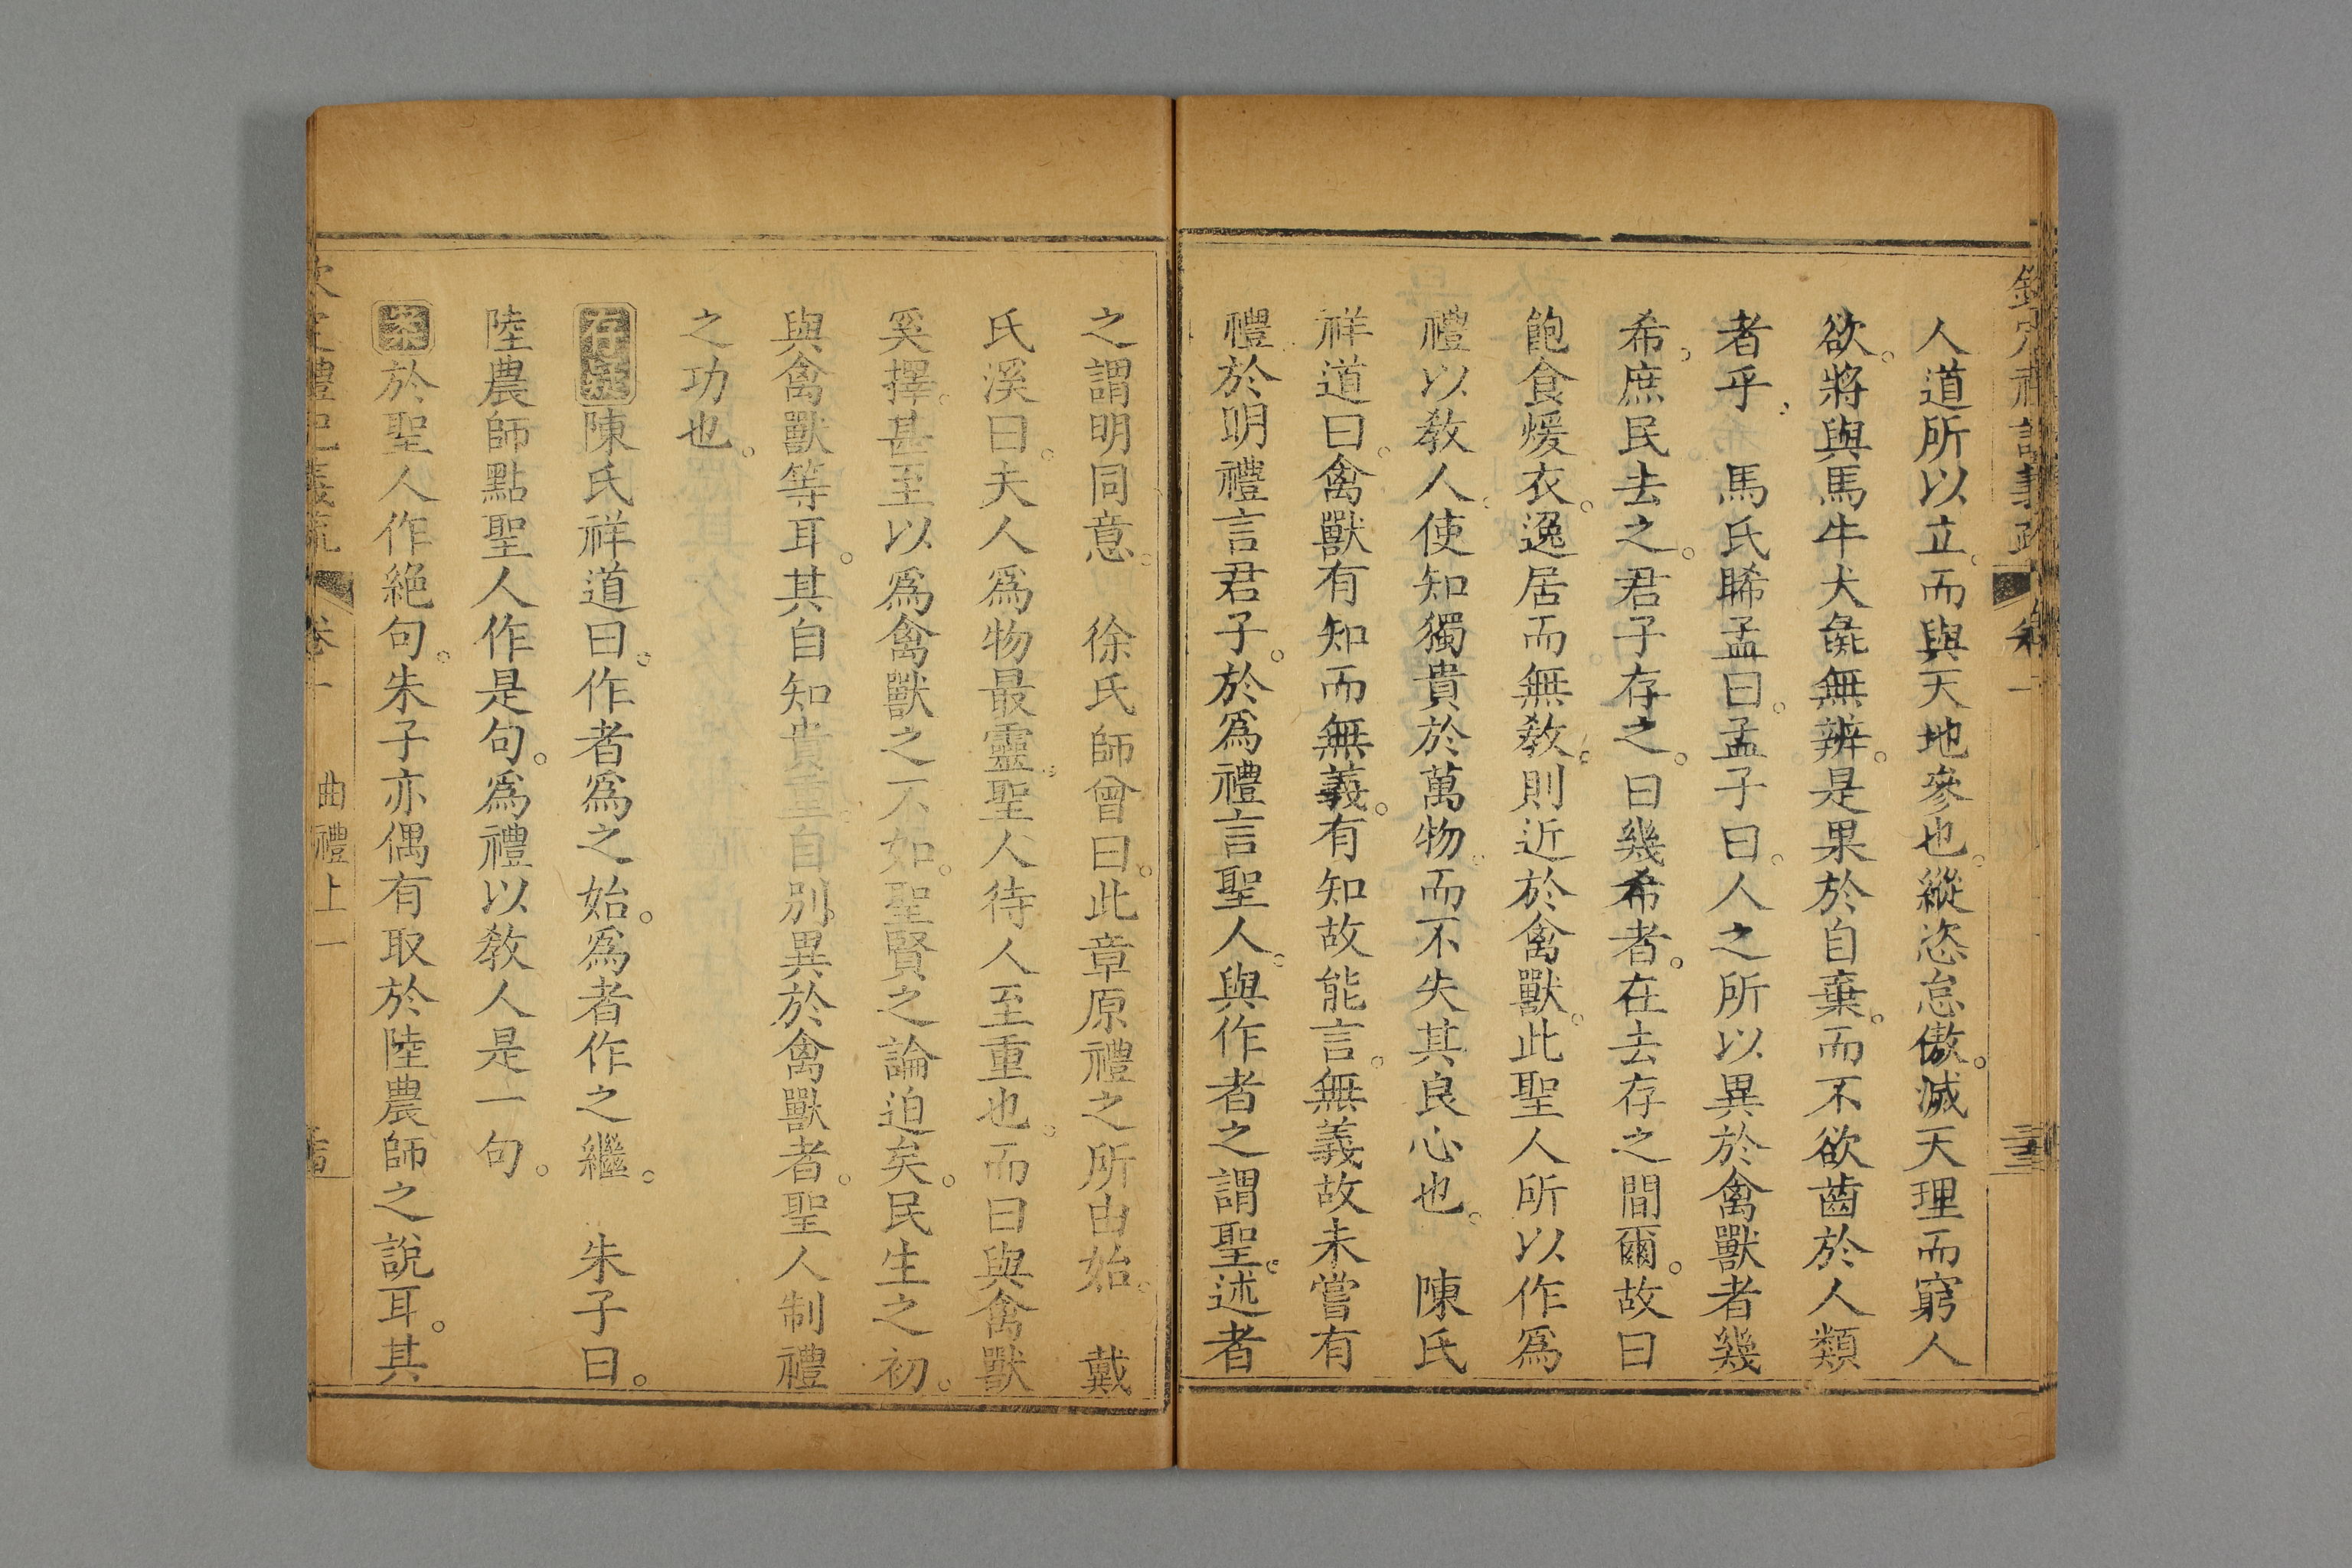 人道所以立。而與天地參也。縱恣怠傲。滅天理而窮人
欲。將與馬牛犬彘無辨。是果於自棄。而不欲齒於人類
者乎。　馬氏睎孟曰。孟子曰。人之所以異於禽獸者幾
希。庶民去之。君子存之。曰幾希者。在去存之間爾。故曰
飽食煖衣。逸居而無教。則近於禽獸。此聖人所以作爲
禮以教人。使知獨貴於萬物。而不失其良心也。　陳氏
祥道曰。禽獸有知而無義。有知故能言。無義故未嘗有
禮於明禮言君子。於爲禮言聖人。與作者之謂聖。述者
之謂明同意。　徐氏師曾曰。此章原禮之所由始。　戴
氏溪曰。夫人爲物最靈。聖人待人至重也。而曰與禽獸
奚擇。甚至以爲禽獸之不如。聖賢之論迫矣。民生之初。
與禽獸等耳。其自知貴重。自別異於禽獸者。聖人制禮
之功也。
存疑陳氏祥道曰。作者爲之始。爲者作之繼。　朱子曰。
陸農師點聖人作是句。爲禮以教人是一句。
案於聖人作絕句。朱子亦偶有取於陸農師之說耳。其
曲禮上一